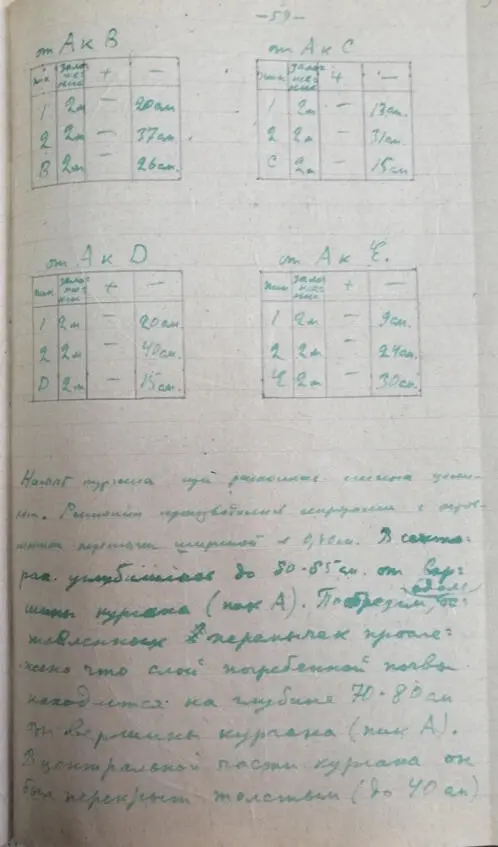 -59-
от А к В
пик зало- же- ние + -
1 2м - 20см
2 2м - 37см.
В 2м - 26см.
от А к С
пик зало- же- ние + -
1 2м - 13см.
2 2м - 31см.
С 2м - 15см
от А к D
пик зало- же- ние + -
1 2м - 20см.
2 2м - 40см.
D 2м - 15см.
от А к Е.
пик зало- же- ние + -
1 2м - 9см.
2 2м - 24см.
Е 2м - 30см.
кургана при раскопках
производились с
перемычки шириной в 0,40см. В секто-
рах углублялась до 80-85см. от вер-
шины кургана (пик А). По обрезам, ос-
тавленных перемычек просле-
жено что слой погребенной почвы
находится на глубине 70-80см
от вершины кургана (пик А).
В центральной части кургана он
был перекрыт толстым (до 40 см)